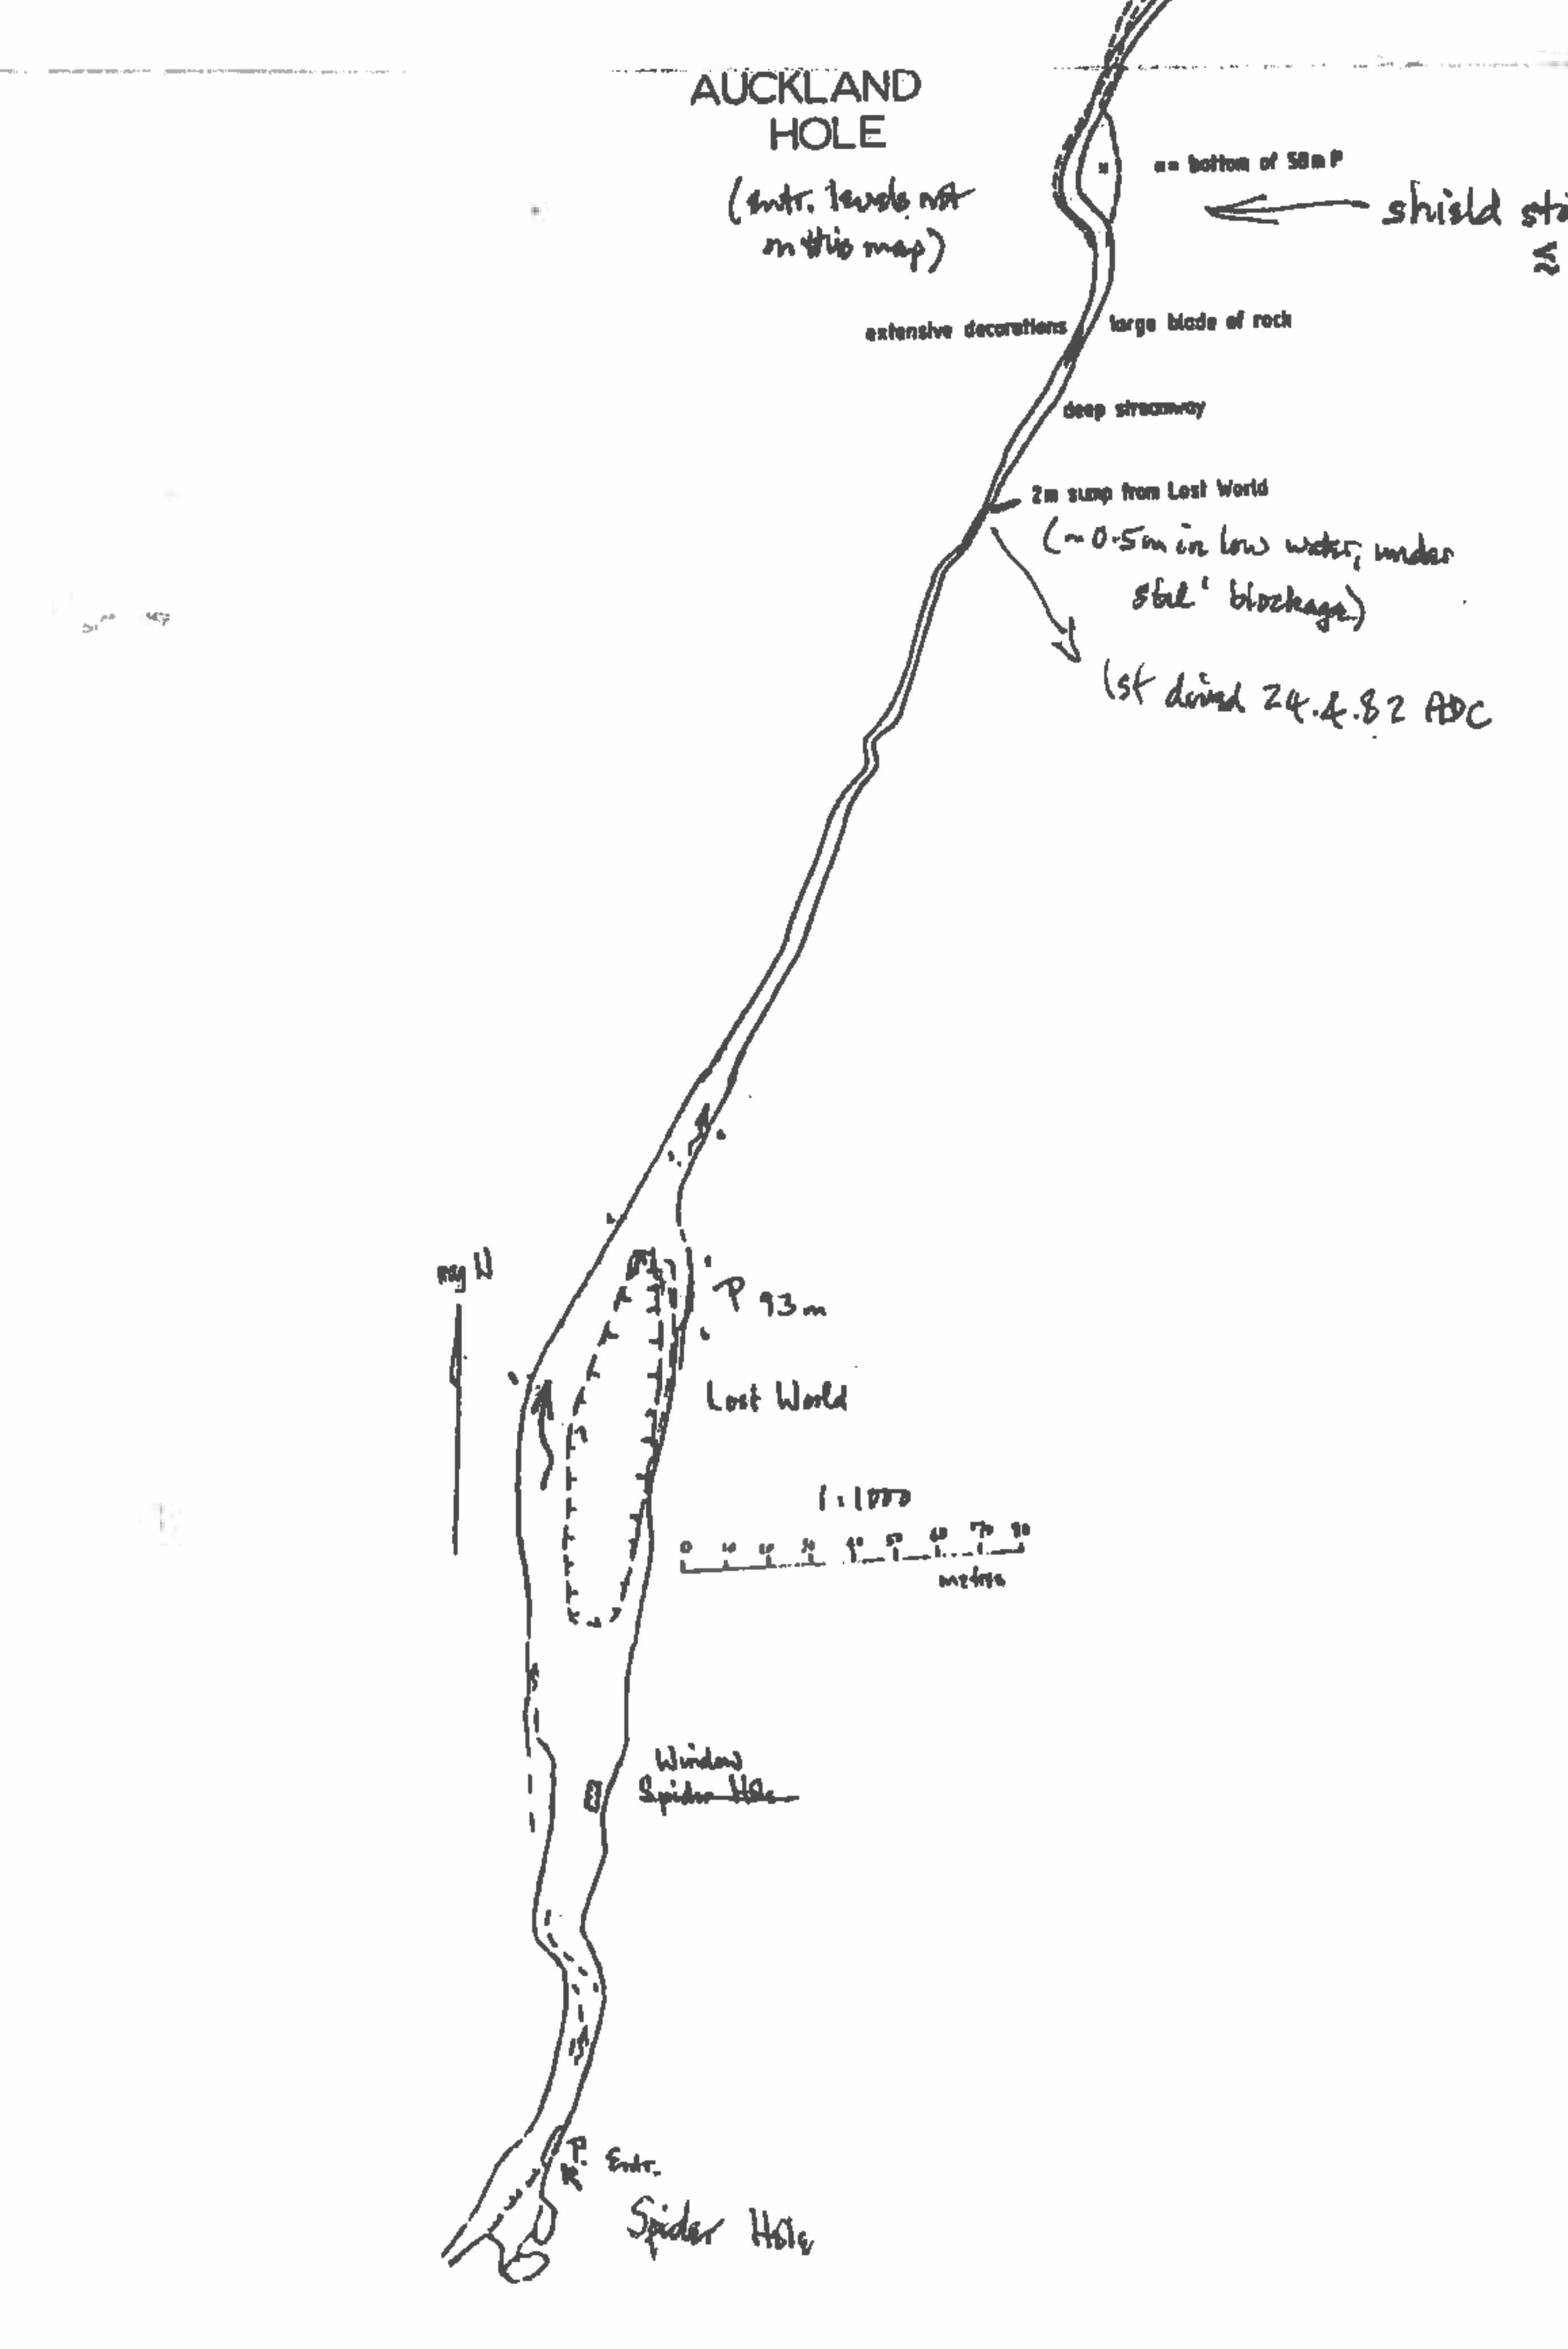 AUCKLAND
HOLE
(entr. levels not
on this map)
x = bottom of 50m P
shield
extensive decorations
large blade of rock
deep streamway
2m sump from Lost World
(~0.5m in low water, under
blockage)
1st dived 24.4.82 ADC
mg N
P 93m
Lost World
1:1000
0 10 20 30 40 50 60 70 80
metres
Window
Spider Hole
P.
Entr.
Spider Hole